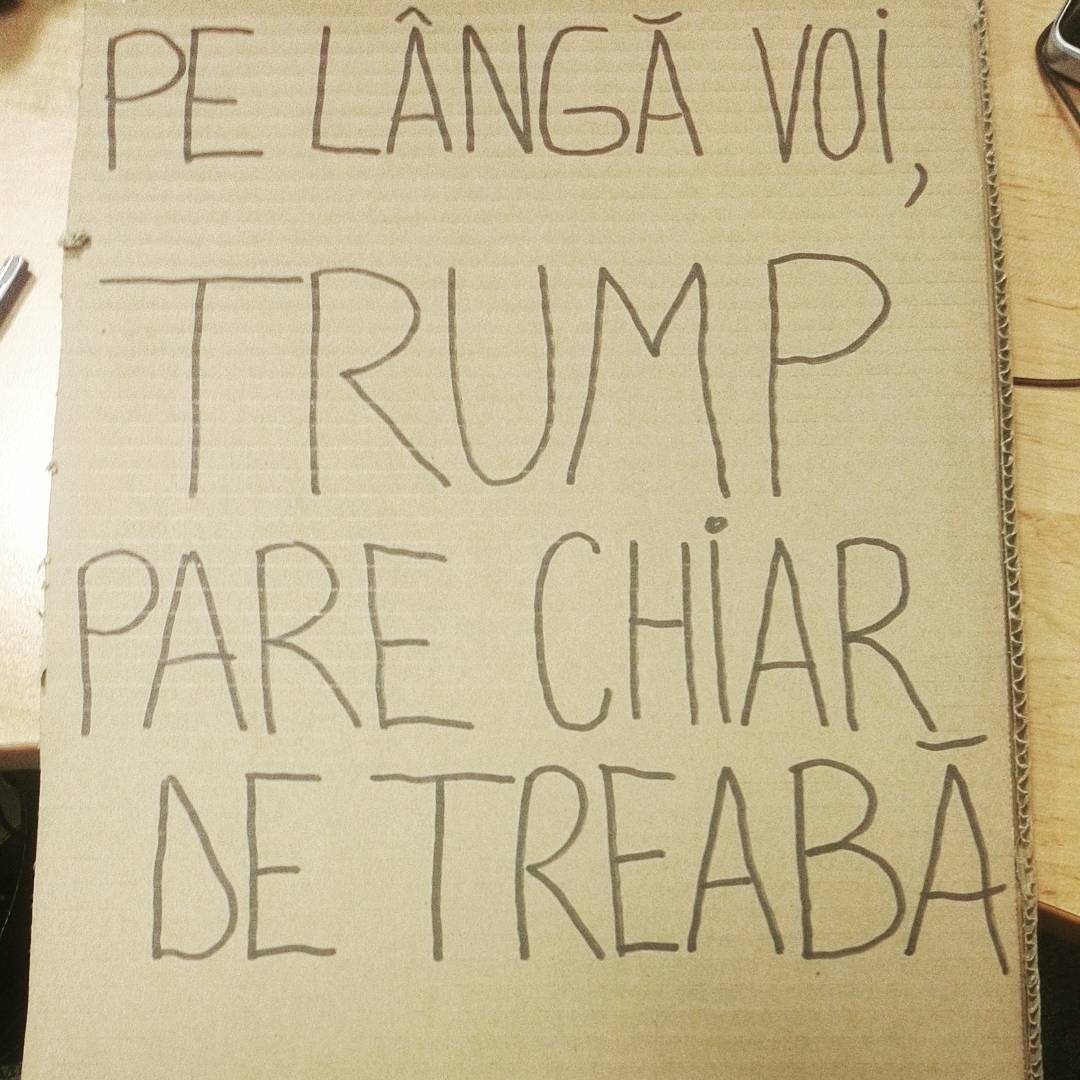 PE LÂNGĂ VOI,
TRUMP
PARE CHIAR
DE TREABĂ